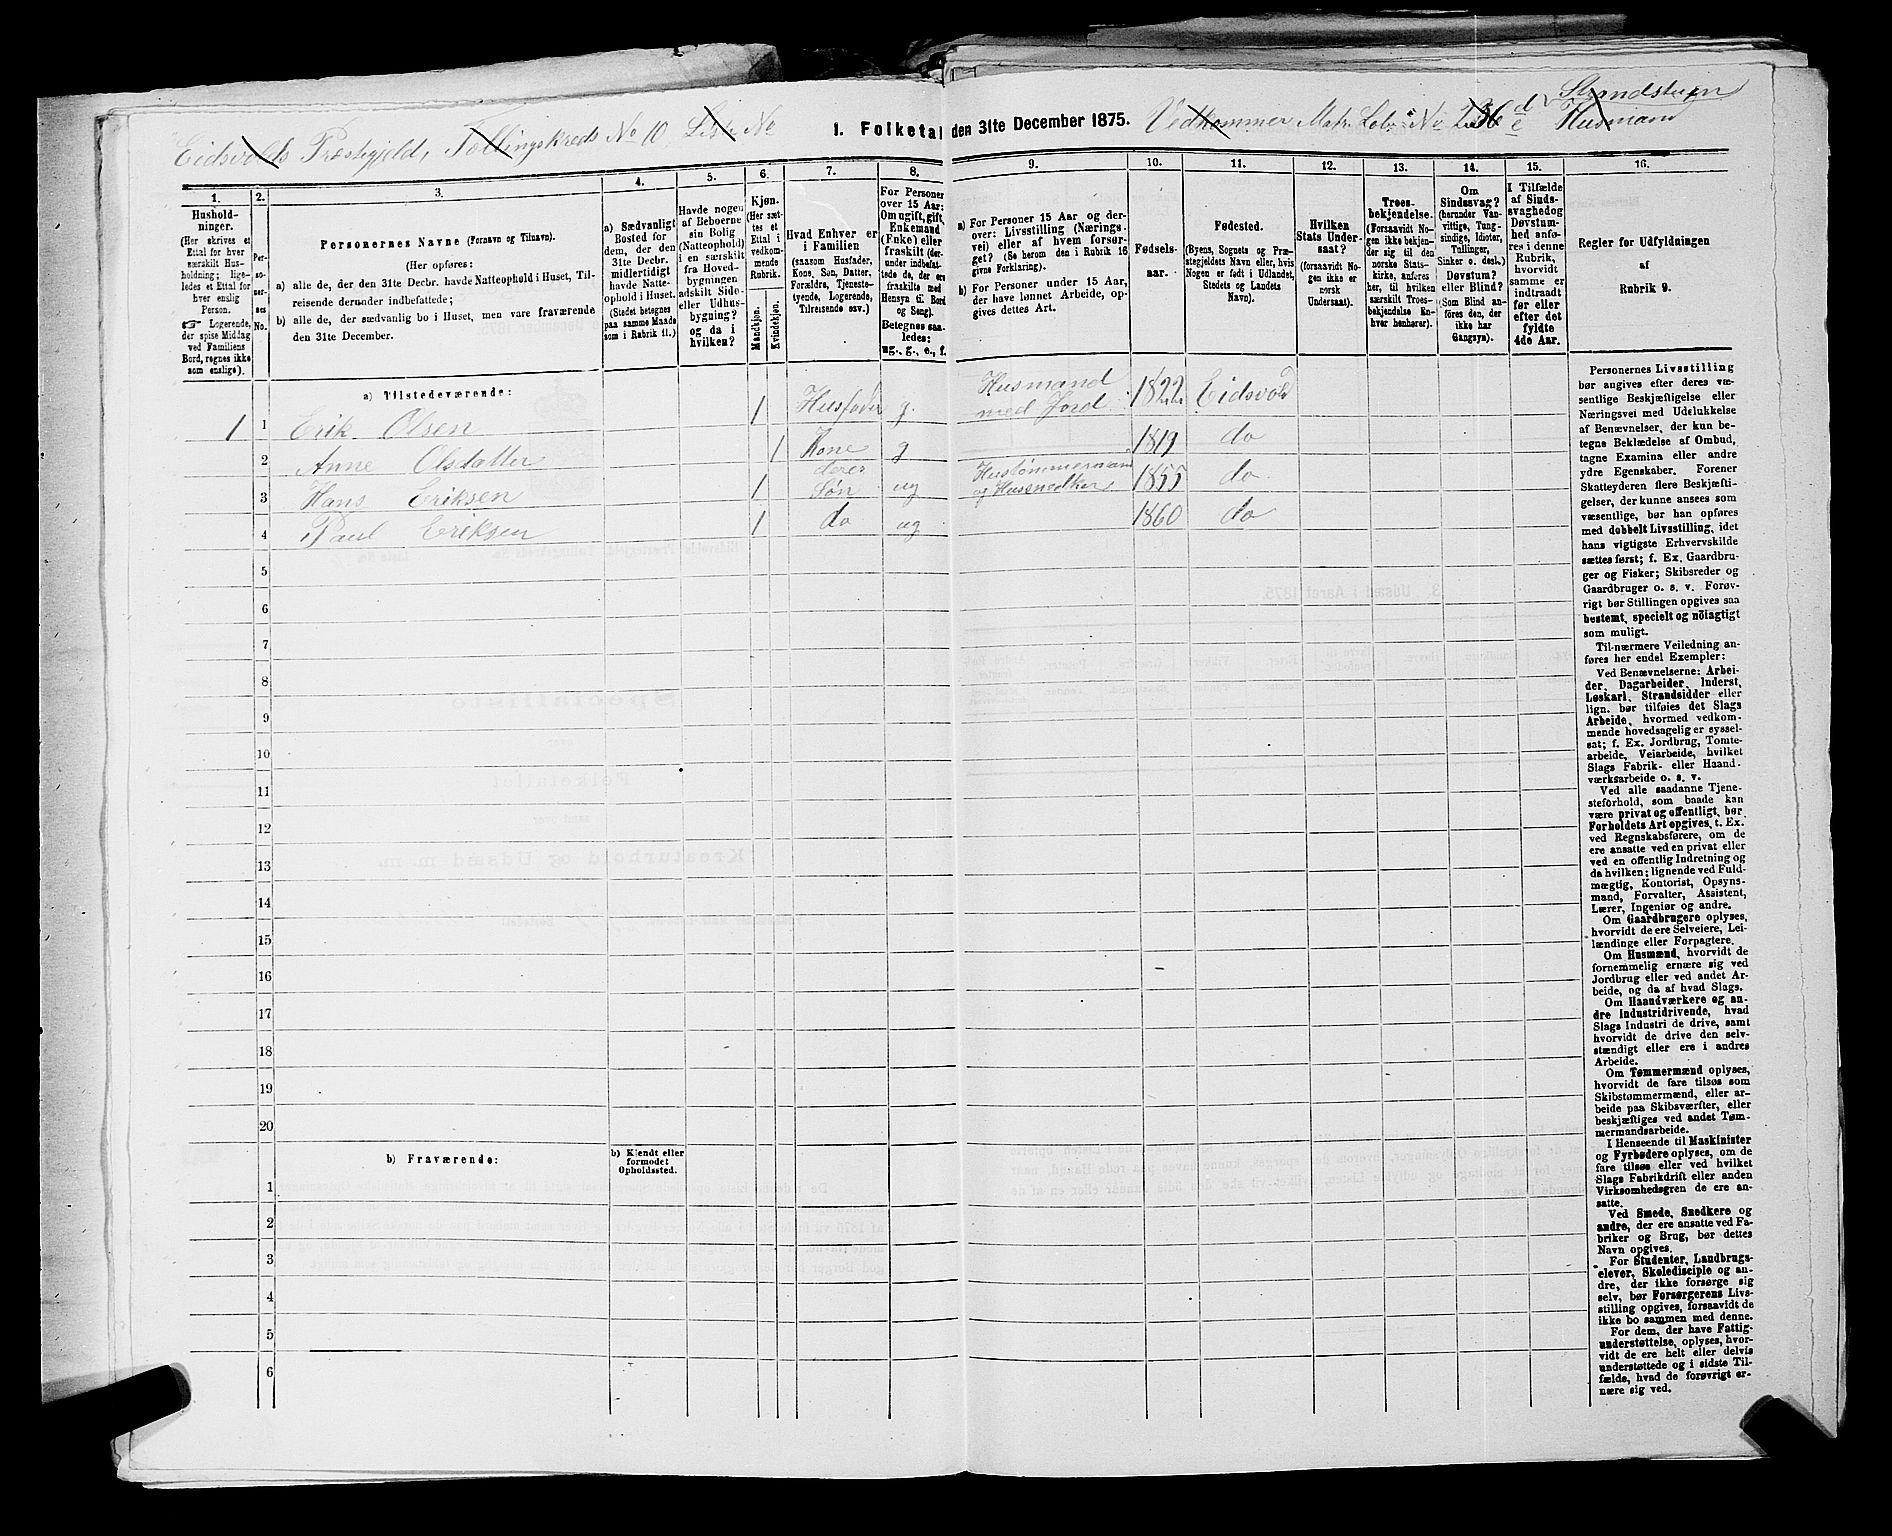 Eidsvolds Præstegjeld, Tællingskreds No 10 Liste No
1. Folketal den 31te December 1875.
Vedkommer Matr. Løbe No
Husmand
1. 2. 3. 4. 5. 6. 7. 8. 9. 10. 11. 12. 13. 14. 15. 16.
Hushold-
ninger.
(Her skrives et
Ettal for hver
særskilt Hus-
holdning; lige-
ledes et Ettal for
hver enslig
Person.
☞ Logerende,
der spise Middag
ved Familiens
Bord, regnes ikke
som enslige).
Per-
so-
ner-
nes
No.
Personernes Navne (Fornavn og Tilnavn).
(Her opføres:
a) alle de, der den 31te Decbr. havde Natteophold i Huset, Til-
reisende derunder indbefattede;
b) alle de, der sædvanlig bo i Huset, men vare fraværende
den 31te December.
a) Sædvanligt
Bosted for
dem, der den
31te Decbr.
midlertidigt
havde Natte-
ophold i Huset.
(Stedet betegnes
paa samme Maade
som i Rubrik 11.)
Havde nogen
af Beboerne
sin Bolig
(Natteophold)
i en særskilt
fra Hoved-
bygningen
adskilt Side-
eller Udhus-
bygning?
og da i
hvilken?
Kjøn.
(Her sæt-
tes et
Ettal i
vedkom-
mende
Rubrik.
Mandkjøn.
Kvindekjøn.
Hvad Enhver er
i Familien
(saasom Husfader,
Kone, Søn, Datter,
Forældre, Tjeneste-
tyende, Logerende,
Tilreisende osv.)
For Personer
over 15 Aar:
Om ugift, gift,
Enkemand
(Enke) eller
fraskilt (der-
under indbefat-
tede de, der ere
fraskilte med
Hensyn til Bord
og Seng).
Betegnes saa-
ledes:
ug., g., e., f.
a) For Personer 15 Aar og der-
over: Livsstilling (Nærings-
vei) eller af hvem forsør-
get? (Se herom den i Rubrik 16
givne Forklaring).
b) For Personer under 15 Aar,
der have lønnet Arbeide, op-
gives dettes Art.
Fødsels-
aar.
Fødested.
(Byens, Sognets og Præ-
stegjeldets Navn eller, hvis
Nogen er født i Udlandet,
Stedets og Landets
Navn).
Hvilken
Stats Under-
saat?
(forsaavidt No-
gen ikke er
norsk
Undersaat).
Troes-
bekjendelse.
(Forsaavidt No-
gen ikke bekjen-
der sig til den
norske Stats-
kirke, anføres
her, til hvilken
særskilt Troes-
bekjendelse En-
hver henhører).
Om
Sindssvag?
(herunder Van-
vittige, Tung-
sindige, Idioter,
Tullinger,
Sinker o. desl.)
Døvstum?
eller Blind?
(Som Blind an-
føres den, der
ikke har
Gangsyn).
I Tilfælde
af Sinds-
svaghed og
Døvstum-
hed anfø-
res i denne
Rubrik,
hvorvidt
samme er
indtraadt
før eller
efter det
fyldte
4de Aar.
Regler for Udfyldningen
af
Rubrik 9.
a) Tilstedeværende:
1 1 Erik Olsen 1 Husfader g. Husmand med Jord 1822 Eidsvold
2 Anne Olsdatter 1 Kone g 1819 do
3 Hans Eriksen 1 deres Søn ug Hustømmermand og Hussnedker 1855 do
4 Paul Eriksen 1 do ug 1860 do
5
6
7
8
9
10
11
12
13
14
15
16
17
18
19
20
b) Fraværende:
b) Kjendt eller
formodet
Opholdssted.
1
2
3
4
5
6
Personernes Livsstilling
bør angives efter deres væ-
sentlige Beskjæftigelse eller
Næringsvei med Udelukkelse
af Benævnelser, der kun be-
tegne Beklædelse af Ombud,
tagne Examina eller andre
ydre Egenskaber. Forener
Skatteyderen flere Beskjæfti-
gelser, der kunne ansees som
væsentlige, bør han opføres
med dobbelt Livsstilling, idet
hans vigtigste Erhvervskilde
sættes først; f. Ex. Gaardbru-
ger og Fisker; Skibsreder og
Gaardbruger o. s. v. Forøv-
rigt bør Stillingen opgives saa
bestemt, specielt og nöiagtigt
som muligt.
Til nærmere Veiledning an-
føres her endel Exempler:
Ved Benævnelserne: Arbei-
der, Dagarbeider, Inderst,
Løskarl, Strandsidder eller
lign. bør tilføies det Slags
Arbeide, hvormed vedkom-
mende hovedsagelig er syssel-
sat; f. Ex. Jordbrug, Tomte-
arbeide, Veiarbeide, hvilket
Slags Fabrik- eller Haand-
værksarbeide o. s. v.
Ved alle saadanne Tjene-
steforhold, som baade kan
være privat og offentligt, bør
Forholdets Art opgives, t. Ex.
ved Regnskabsførere, om de
ere ansatte ved en privat eller
ved en offentlig Indretning og
da hvilken; lignende ved Fuld-
mægtig, Kontorist, Opsyns-
mand, Forvalter, Assistent,
Lærer, Ingeniør og andre.
Om Gaardbrugere oplyses,
hvorvidt de ere Selveiere, Lei-
lændinge eller Forpagtere.
Om Husmænd, hvorvidt de
fornemmelig ernære sig ved
Jordbrug eller ved andet Ar-
beide, og da af hvad Slags.
Om Haandværkere og an-
dre Industridrivende, hvad
Slags Industri de drive, samt
hvorvidt de drive den selv-
stændigt eller ere i andres
Arbeide.
Om Tømmermænd oplyses,
hvorvidt de fare tilsøs som
Skibstømmermænd, eller ar-
beide paa Skibsværfter, eller
beskjæftiges ved andet Tøm-
mermandsarbeide.
I Henseende til Maskinister
og Fyrbødere oplyses, om de
fare tilsøs eller ved hvilket
Slags Fabrikdrift eller anden
Virksomhedsgren de ere an-
satte.
Ved Smede, Snedkere og
andre, der ere ansatte ved Fa-
briker og Brug, bør dettes
Navn opgives.
For Studenter, Landbrugs-
elever, Skoledisciple og an-
dre, der ikke forsørge sig
selv, bør Forsørgerens Livs-
stilling opgives, forsaavidt de
ikke bo sammen med denne.
For dem, der have Fattig-
understøttelse, oplyses, hvor-
vidt de ere helt eller delvis
understøttede og i sidste Til-
fælde, hvad de forøvrigt er-
nære sig ved.